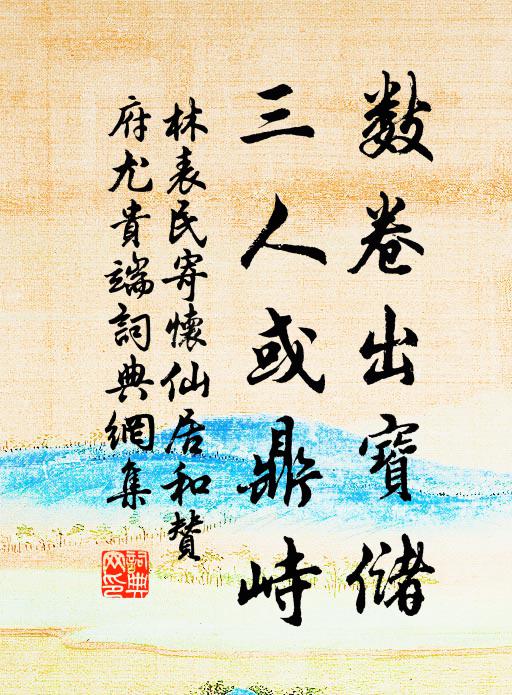 數卷出寶儲
三人或鼎峙
林表民寄懷仙居和贊
府尤貴端詞典網集
詞典
網印